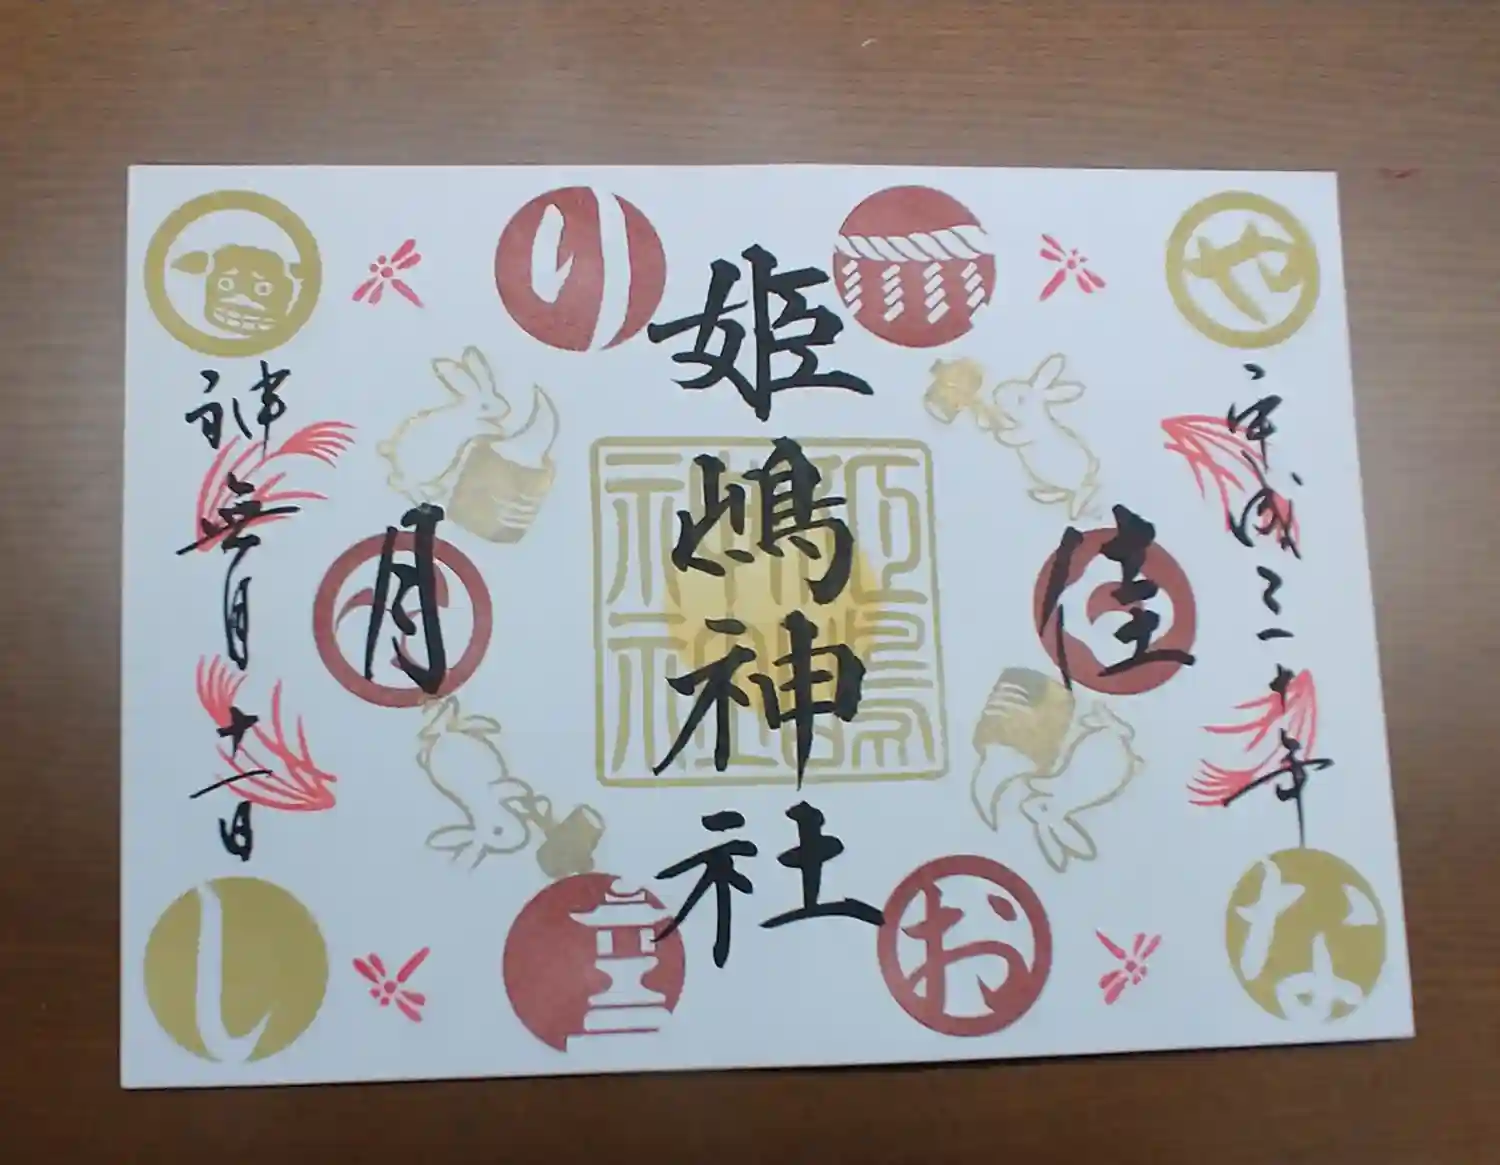 平成三十年
佳
姫嶋神社
月
神無月十一日
や
の
な
お
し
姫嶋
神社